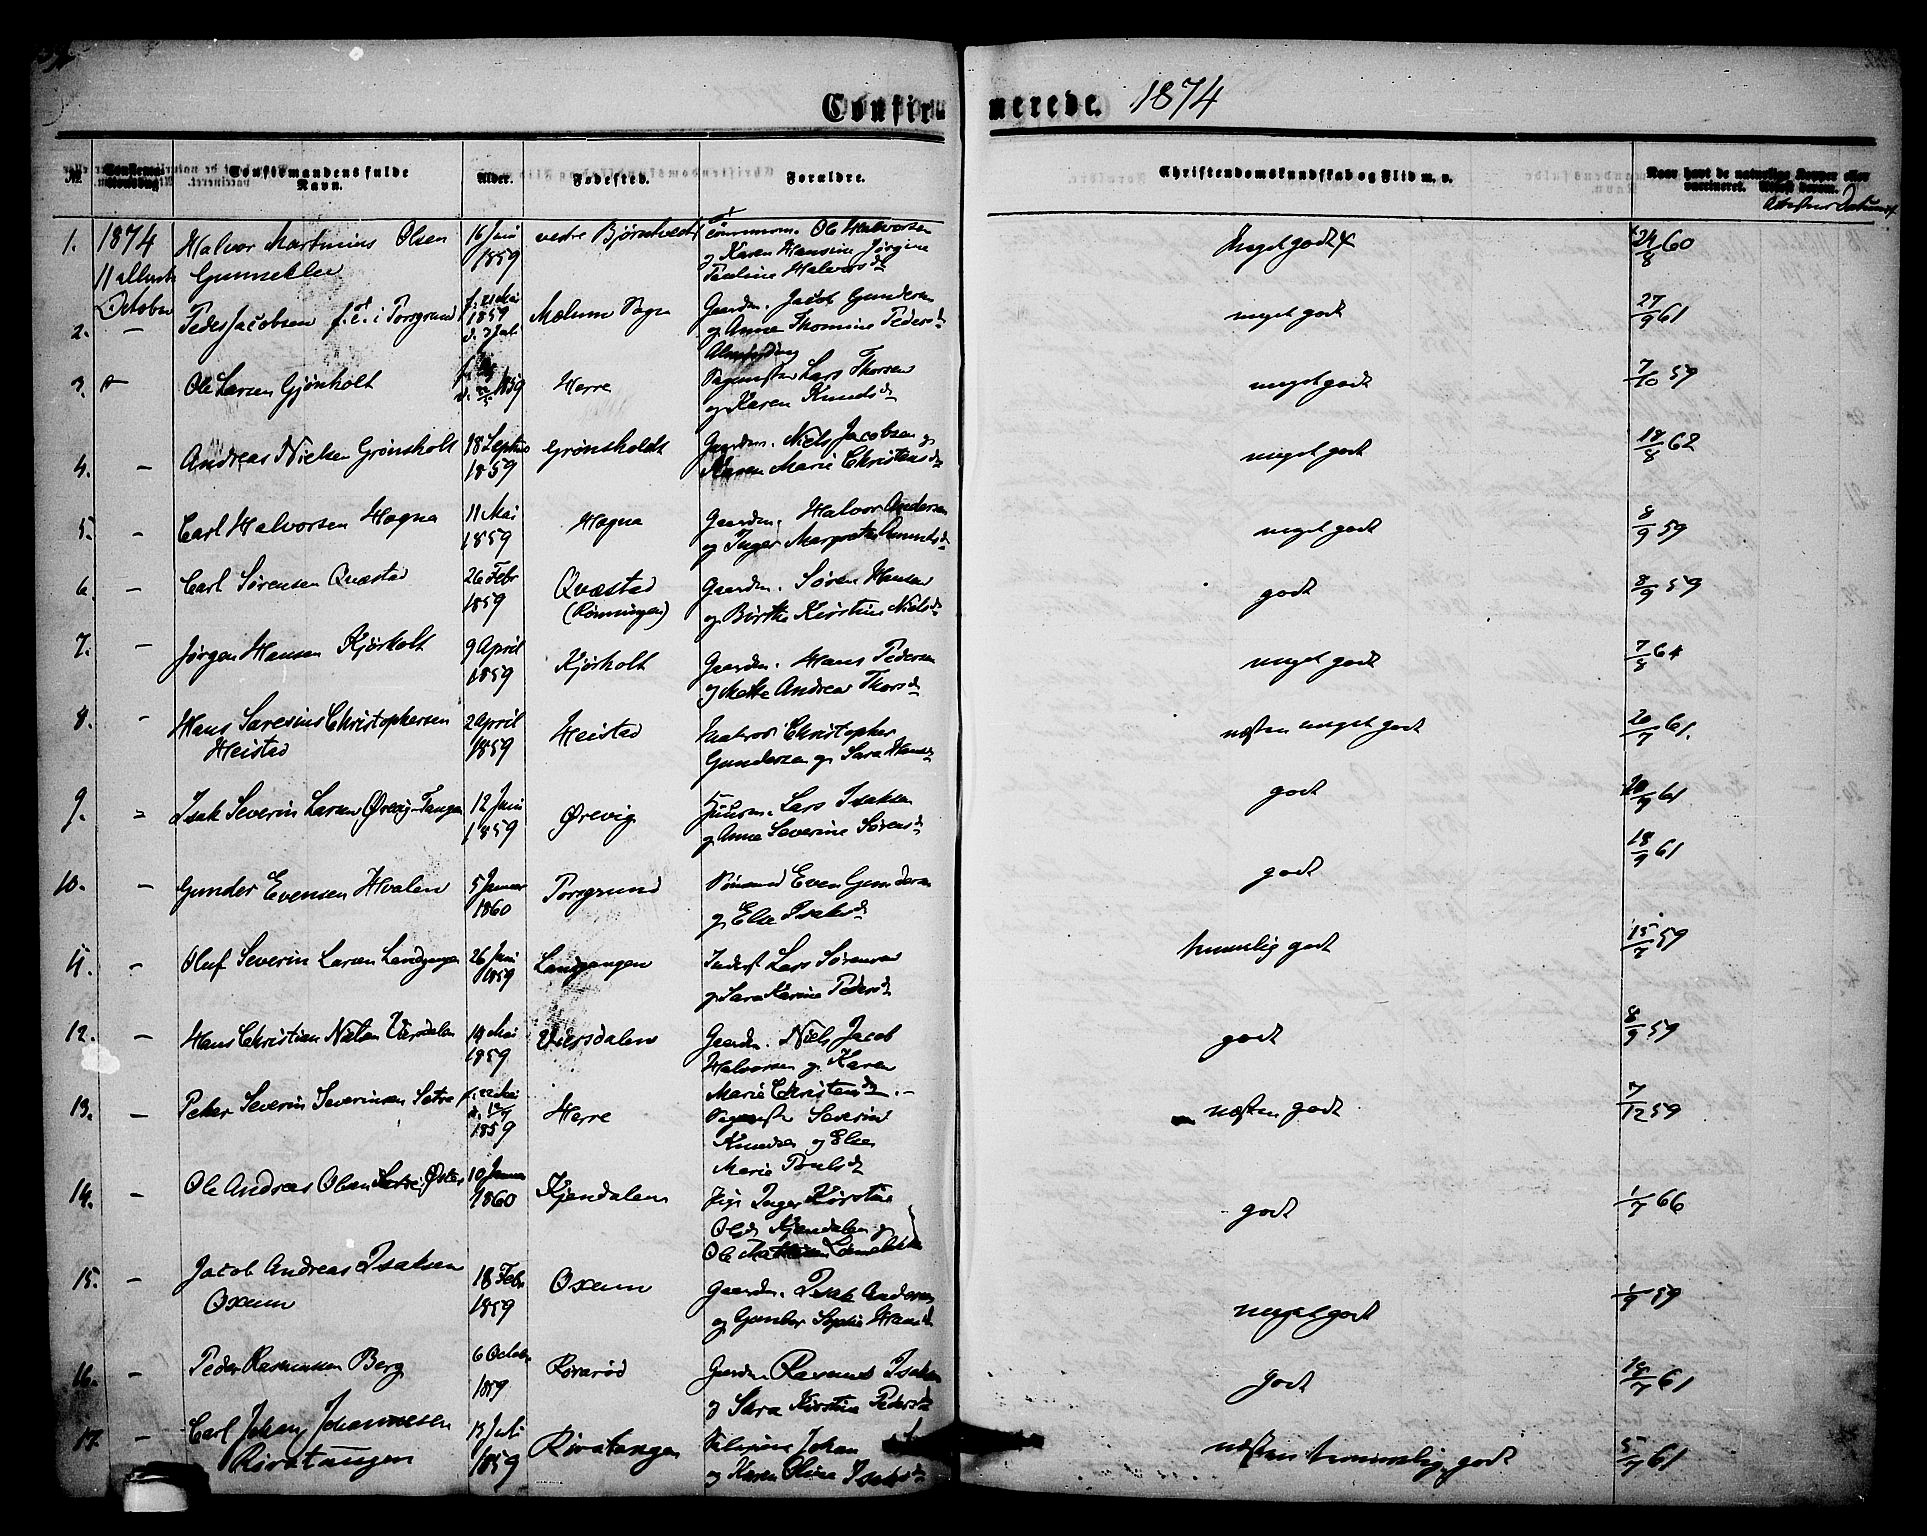 Confirmerede. 1874
№ Confirmationsdag Confirmandens fulde Navn. Alder. Fødested. Forældre. Christendomskundskab og Flid m. v. Naar havt de naturlige Kopper eller vaccineret. Attest derom.
1. 1874 Halvor Martinius Olsen 16 Juni vestre Ole Halvorsen Meget godt 24/8 60
11 October 1859 og Karen Hansine Jørgine
Pauline Halvorsd.
2. – Peder Jacobsen f. T. i Porsgrund 1859 Mælum Sogn Gaardm. Jacob Gundersen meget godt 27/9 61
og Anne Thomine Pedersd.
3. Ole Larsen Gjønholt 1859 Herre Lars Thorsen meget godt 7/10 59
og Karen Knudsd.
4. – Andreas Nielsen Grønsholt 18 Septbr Grønsholdt Gaardm. Niels Jacobsen og meget godt 18/8 62
1859 Karen Marie Christensd.
5. – Carl Halvorsen Hogna 11 Mai Hogna Gaardm. Halvor Andersen meget godt 8/9 59
1859 og Inger Margrethe
6. – Carl Sørensen Qvæstad 26 Febr Qvæstad Gaardm. Søren Hansen godt 8/9 59
1859 (Rønningen) og Birthe Kirstine Nielsd.
7. – Jørgen Hansen Kjørholt 9 April Kjørholt Gaardm. Hans Pedersen meget godt 7/8 64
1859 og Mette Andrea Thorsd.
8. Hans Saresius Christophersen 2 April Heistad Matros Christopher næsten meget godt 26/7 61.
Heistad 1859 Gundersen og Sara Hansd.
9. Isak Severin Larsen Ørevig-Tangen 12 Juni Ørevig Huusm. Lars Isaksen godt 20/9 61
1859 og Anne Severine Sørensd.
10. – Gunder Evensen Hvalen 5 Januar Porsgrund Sømand Even Gundersen godt 18/9 61
1860 og Else Isaksd.
11. – Oluf Severin Larsen Landgangen 26 Juni Landgangen Inderst Lars Sørensen temmelig godt 15/7 59
1859 og Sara Karine Pedersd.
12. – Hans Christian Nielsen Versdalen 14 Mai Versdalen Gaardm. Niels Jacob godt 8/9 59
1859 Halvorsen og Karen
Marie Christensd.
13. – Peter Severin Severinsen Sætre f. 22 Mai Herre Severin næsten godt 7/12 59
1859 Knudsen og Else
Marie Poulsd.
14. – Ole Andreas Olsen 10 Januar Kjendalen Pige Inger Kirstine godt 1/7 66
1860 Olsd. Kjendalen og
Ole
15. – Jacob Andreas Isaksen 18 Febr Oxum Gaardm. Isak Andersen meget godt 1/9 59
Oxum 1859 og Gunbor Sophie Hansd.
16. – Peder Rasmussen Berg 6 Octobr Rørarød Gaardm. Rasmus Isaksen godt 18/7 61
1859 og Sara Kirstine Pedersd.
17. – Carl Johan Johannesen 13 Juli Røratangen Johan næsten temmelig godt 5/7 61
Røratangen 1859 og Karen Oline Isaksd.